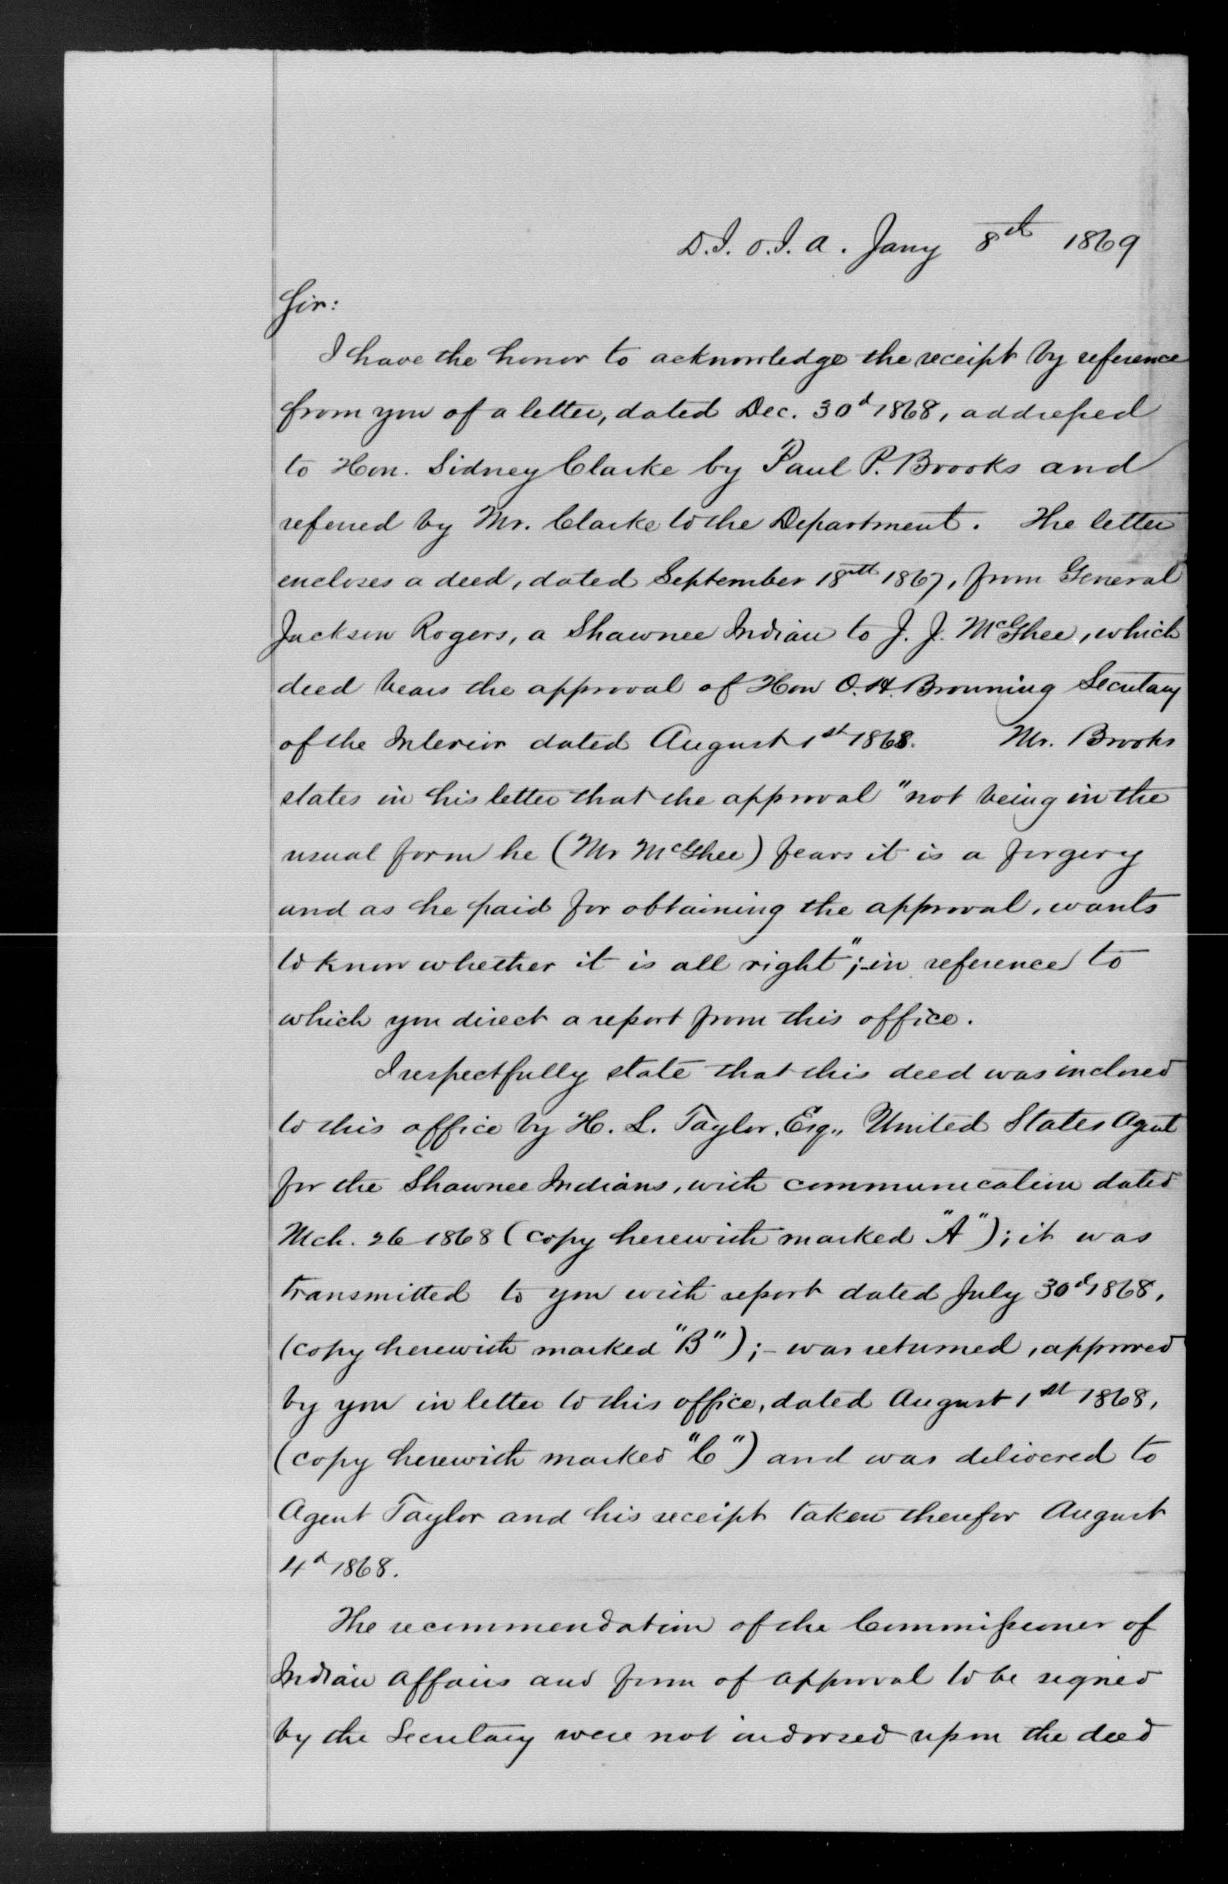 D.I. O.I.A. Jany 8th 1869
Sir:
I have the honor to acknowledge the receipt by reference
from you of a letter, dated Dec. 30d 1868, addressed
to Hon. Sidney Clarke by Paul P. Brooks and
referred by Mr. Clarke to the Department. The letter
encloses a deed, dated September 18th 1867, from General
Jackson Rogers, a Shawnee Indian to J. J. McGhee, which
deed bears the approval of Hon O. H. Browning Secretary
of the Interior dated August 1st 1868. Mr. Brooks
states in his letter that the approval "not being in the
usual form he (Mr McGhee) fears it is a forgery
and as he paid for obtaining the approval, wants
to know whether it is all right"; in reference to
which you direct a report from this office.
I respectfully state that this deed was inclosed
to this office by H. L. Taylor, Esq., United States Agent
for the Shawnee Indians, with communication dated
Mch. 26 1868 (copy herewith marked "A"); it was
transmitted to you with report dated July 30d 1868,
(copy herewith marked "B"); - was returned, approved
by you in letter to this office, dated August 1st 1868,
(copy herewith marked "C") and was delivered to
Agent Taylor and his receipt taken therefor August
4d 1868.
The recommendation of the Commissioner of
Indian Affairs and form of approval to be signed
by the Secretary were not indorsed upon the deed